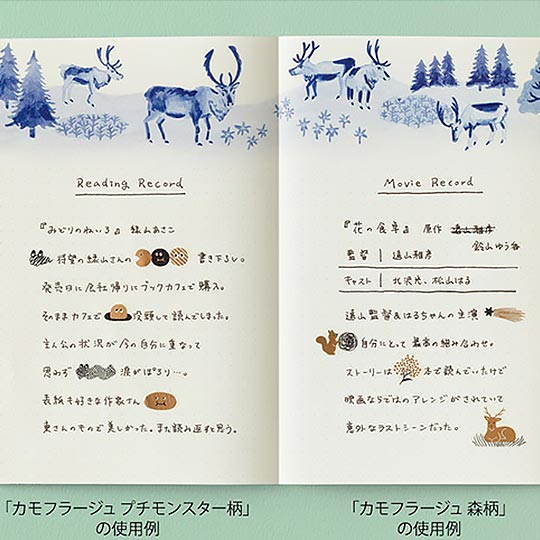 Reading Record
『みどりのねいろ』 緑山あさこ
待望の緑山さんの 書き下ろし。
発売日に会社帰りにブックカフェで購入。
そのままカフェで 没頭して読んでしまった。
主人公の状況が今の自分に重なって
思わず 涙がぽろり…。
表紙も好きな作家さん
東さんのもので美しかった。また読み返すと思う。
Movie Record
『花の食卓』 原作 遠山雅彦
鈴山ゆう香
監督 遠山雅彦
キャスト 北沢光、松山はる
遠山監督&はるちゃんの主演
自分にとって最高の組み合わせ。
ストーリーは 本で読んでいたけど
映画ならではのアレンジがされていて
意外なラストシーンだった。
「カモフラージュ プチモンスター柄」
の使用例
「カモフラージュ 森柄」
の使用例